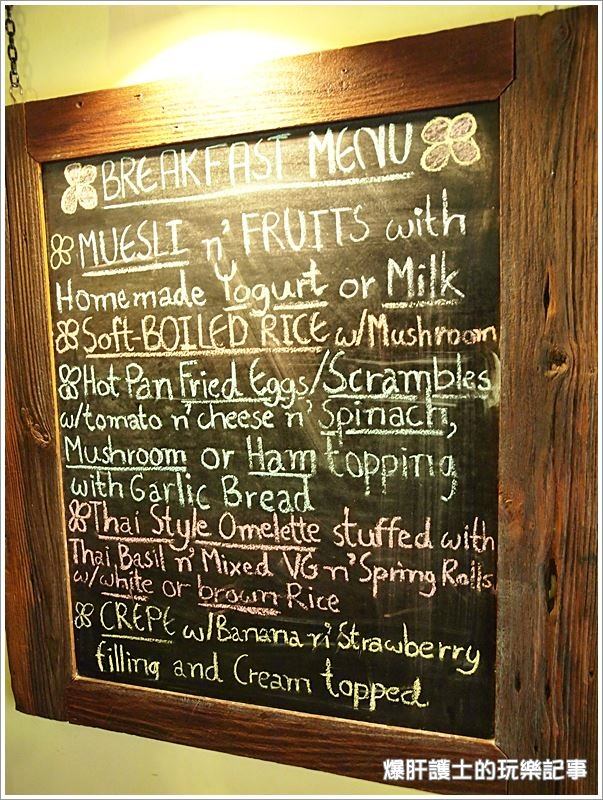 BREAKFAST MENU
MUESLI n' FRUITS with
Homemade Yogurt or Milk
Soft-BOILED RICE w/Mushroom
Hot Pan Fried Eggs/Scrambles
w/tomato n' cheese n' Spinach,
Mushroom or Ham topping
with Garlic Bread
Thai Style Omelette stuffed with
Thai Basil n' Mixed VG n' Spring Rolls
w/white or brown Rice
CREPE w/Banana n' Strawberry
filling and Cream topped
爆肝護士的玩樂記事